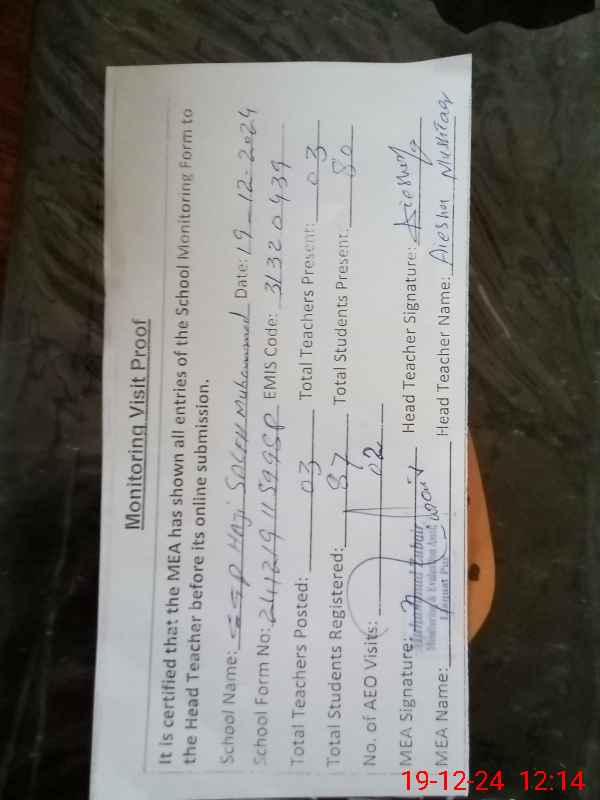 Monitoring Visit Proof
It is certified that the MEA has shown all entries of the School Monitoring Form to
the Head Teacher before its online submission.
School Name: Haji Saleh Muhammad Date: 19-12-2024
School Form No: EMIS Code: 31320439
Total Teachers Posted: 03 Total Teachers Present: 03
Total Students Registered: 87 Total Students Present: 80
No. of AEO Visits: 02
MEA Signature: Head Teacher Signature:
MEA Name: Head Teacher Name: Aiesha Mushtaq
19-12-24 12:14